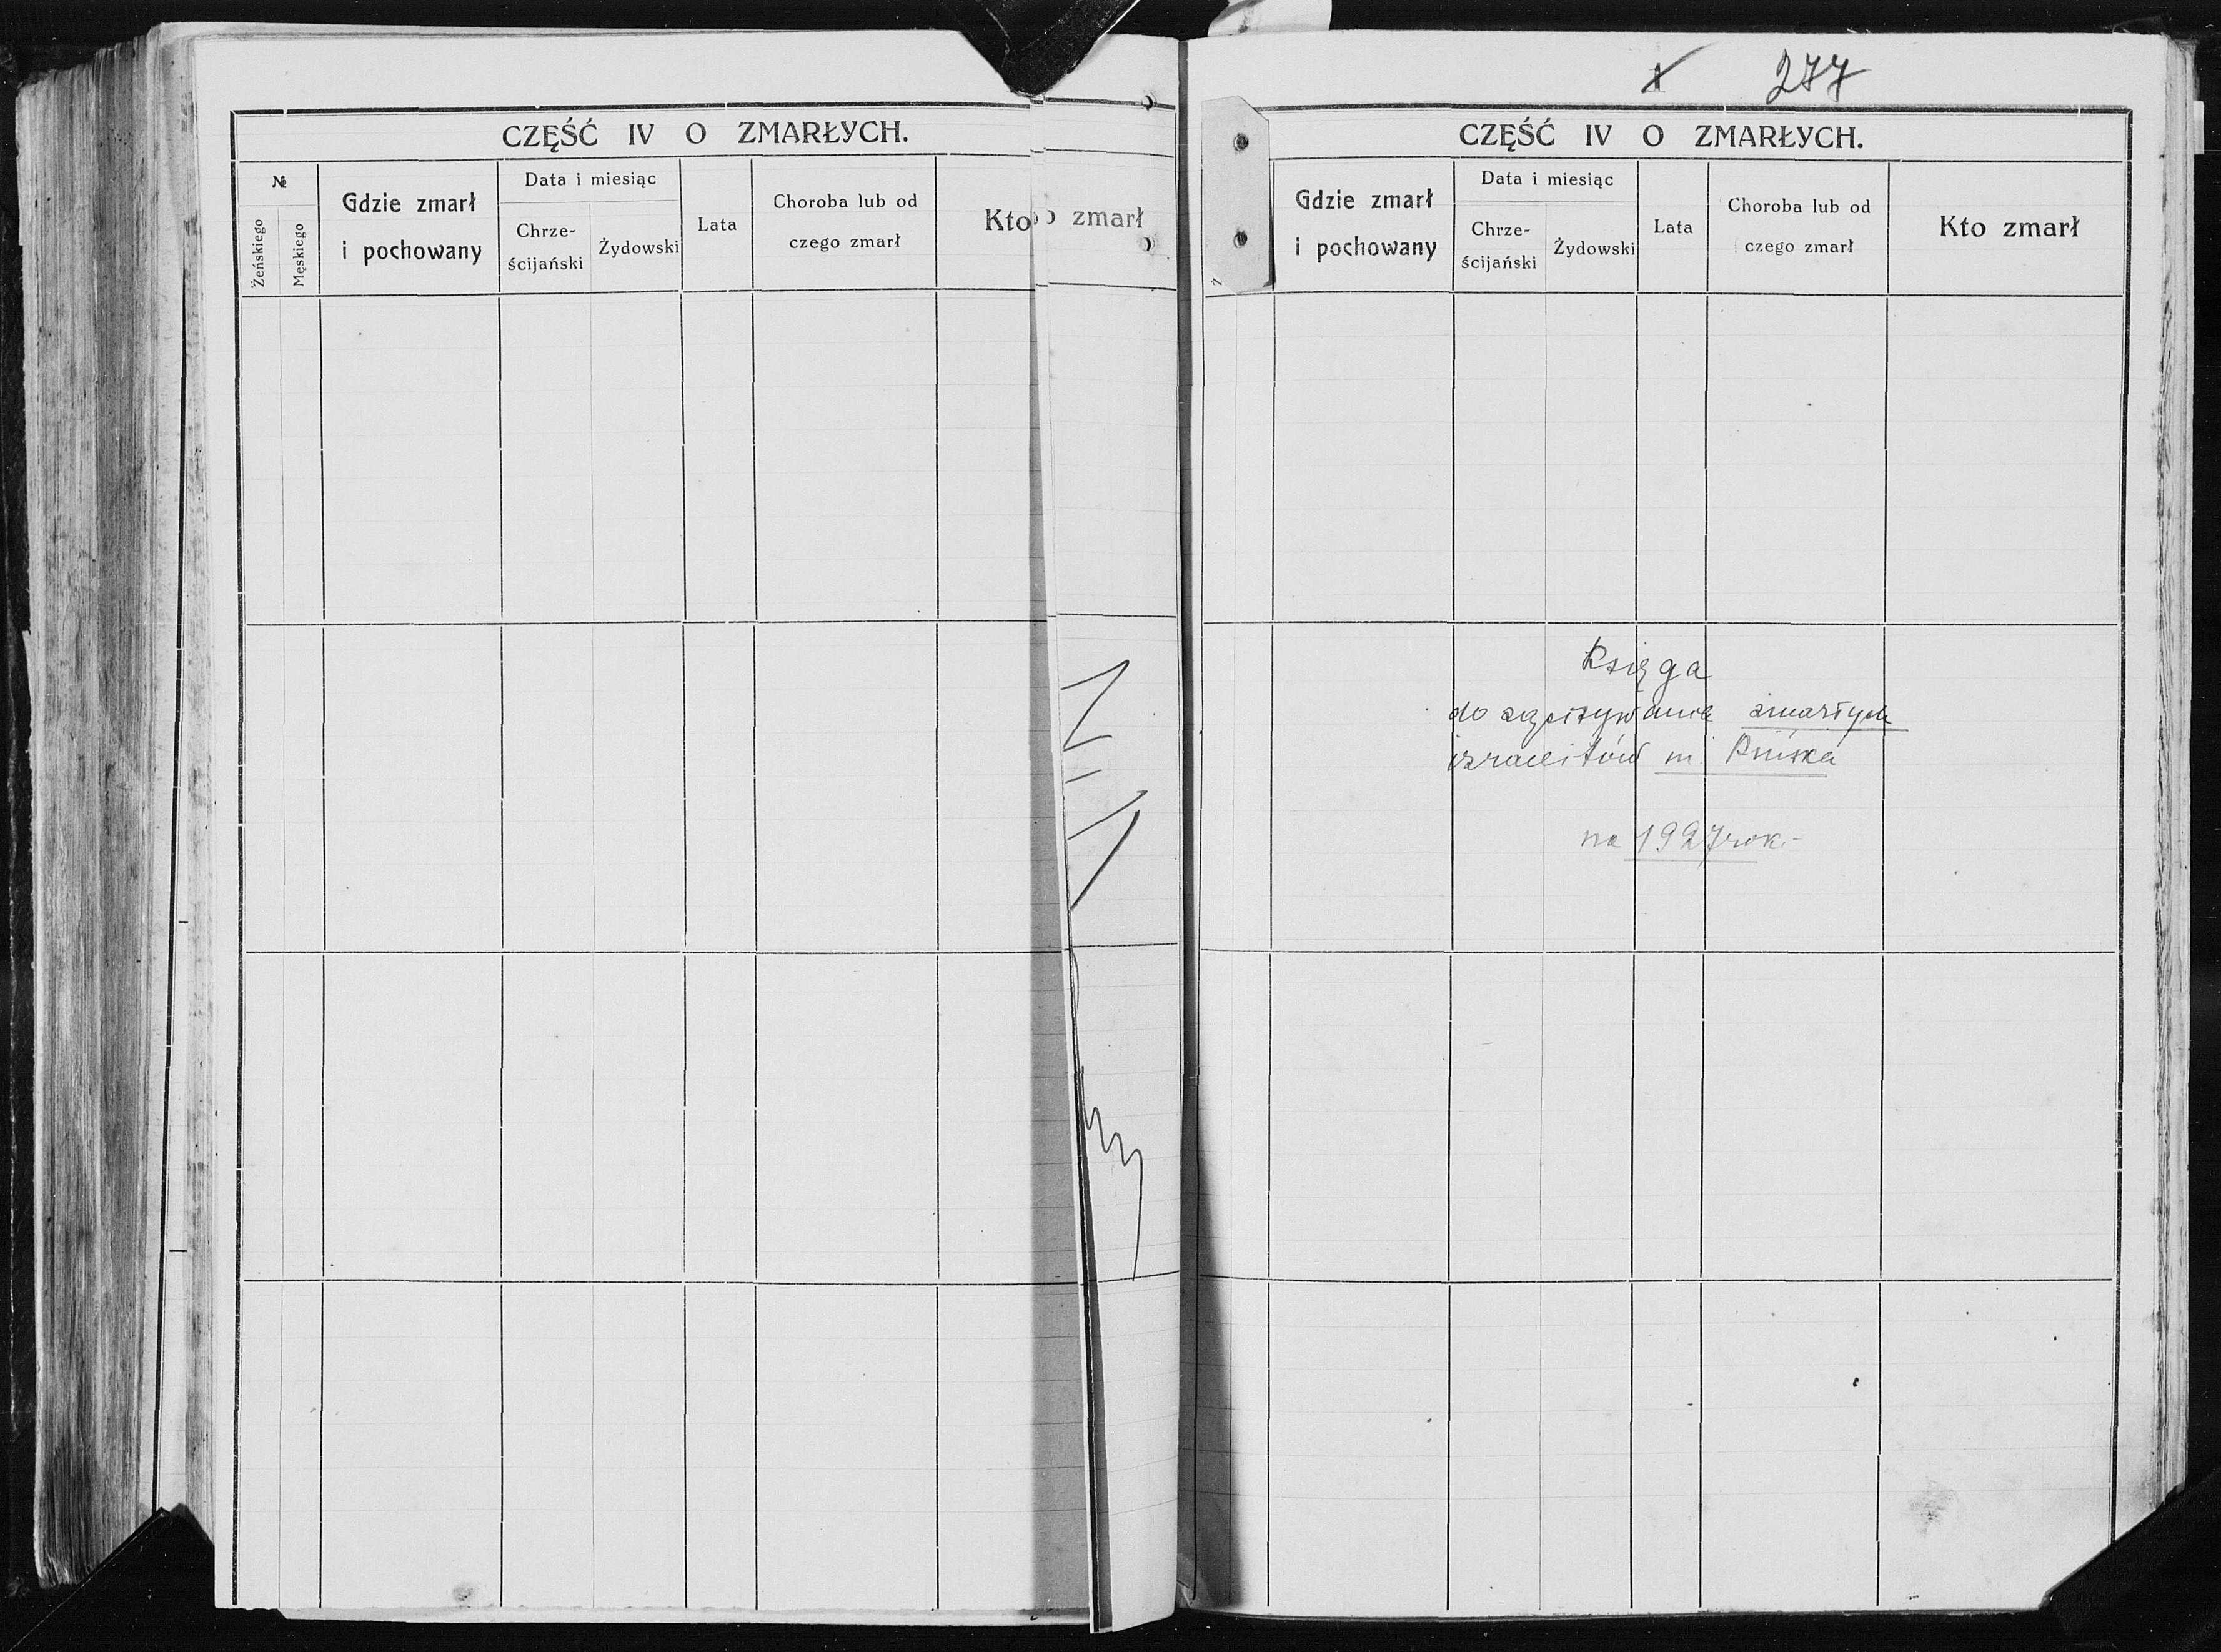 CZĘŚĆ IV O ZMARŁYCH.
№
Żeńskiego
Męskiego
Gdzie zmarł
i pochowany
Data i miesiąc
Chrze-
ścijański
Żydowski
Lata
Choroba lub od
czego zmarł
Kto
zmarł
277
CZĘŚĆ IV O ZMARŁYCH.
Gdzie zmarł
i pochowany
Data i miesiąc
Chrze-
ścijański
Żydowski
Lata
Choroba lub od
czego zmarł
Kto zmarł
Księga
do zapisywania zmarłych
izraelitów m. Pińska
na 1927 rok.-